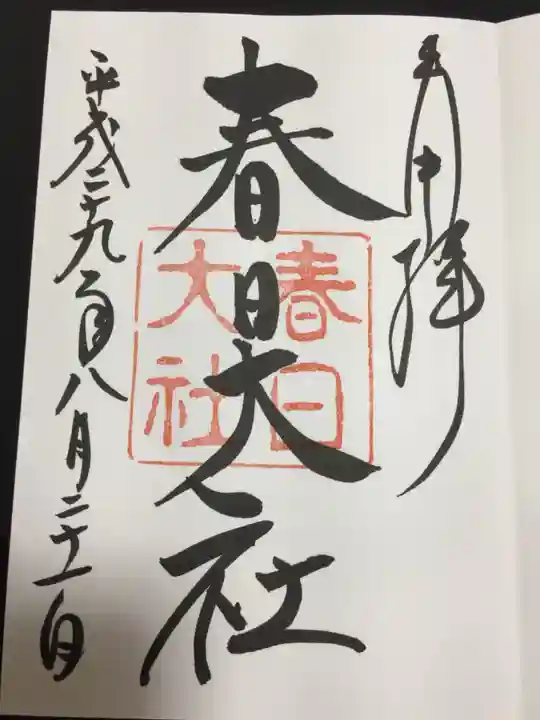 奉拝
春日大社
春日大社
平成二十九年八月二十一日